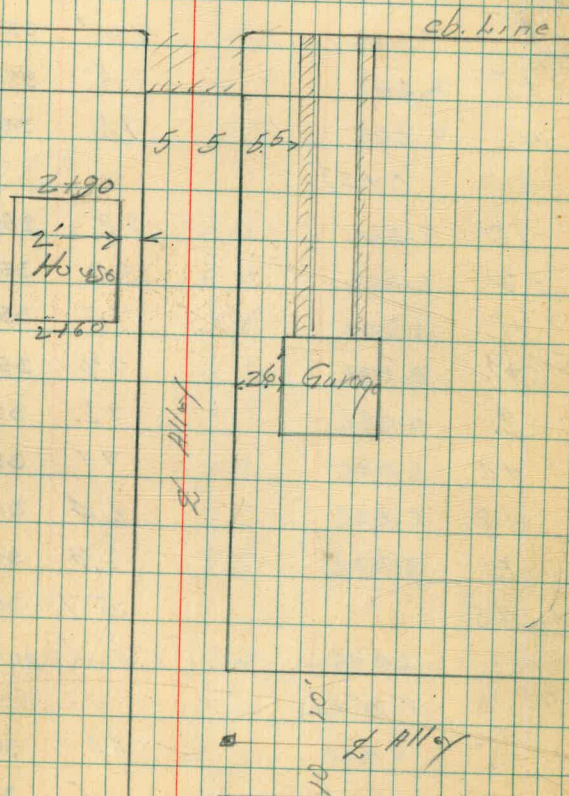 cb. Line
5 5 5.5
2+90
2'
House
2+60
2.6' Garage
℄ Alley
10'
℄ Alley
10